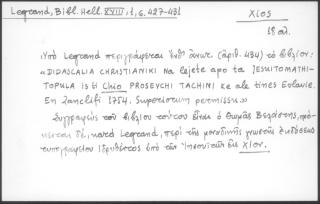 Legrand, Bibl. Hell. XVIII, 1, σ. 427-431
ΧΙΟΣ
18 αἰ.
Ὑπὸ Legrand περιγράφεται (ἀριθ. 434) τὸ βιβλίον:
«DIDASCALIA CHRISTIANIKI na lejete apo ta IESUITOMATHI-
TOPULA is ti Chio PROSEVCHI TACHINI ke ale tines Evlavie.
En Zanclifi 1754. Superiorum permissu.»
Συγγραφεὺς τοῦ βιβλίου τούτου εἶναι ὁ Θωμᾶς Βελάστης, πρό-
κειται δέ, κατὰ Legrand, περὶ τῆς μοναδικῆς γνωστῆς ἐκδόσεως
τυπογραφείου ἱδρυθέντος ὑπὸ τῶν Ἰησουϊτῶν εἰς Χίον.